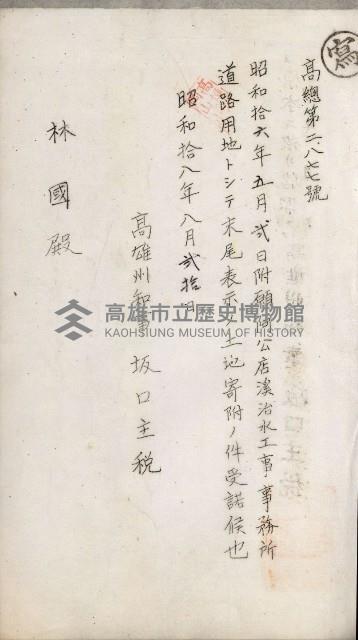 寫
高總第二八七七號
昭和拾六年五月弍日附願阿公店溪治水工事事務所
道路用地トシテ末尾表示ノ土地寄附ノ件受諾候也
昭和拾八年八月弍拾日
高雄州知事 坂口主税
林國殿
高雄市立歷史博物館
KAOHSIUNG MUSEUM OF HISTORY